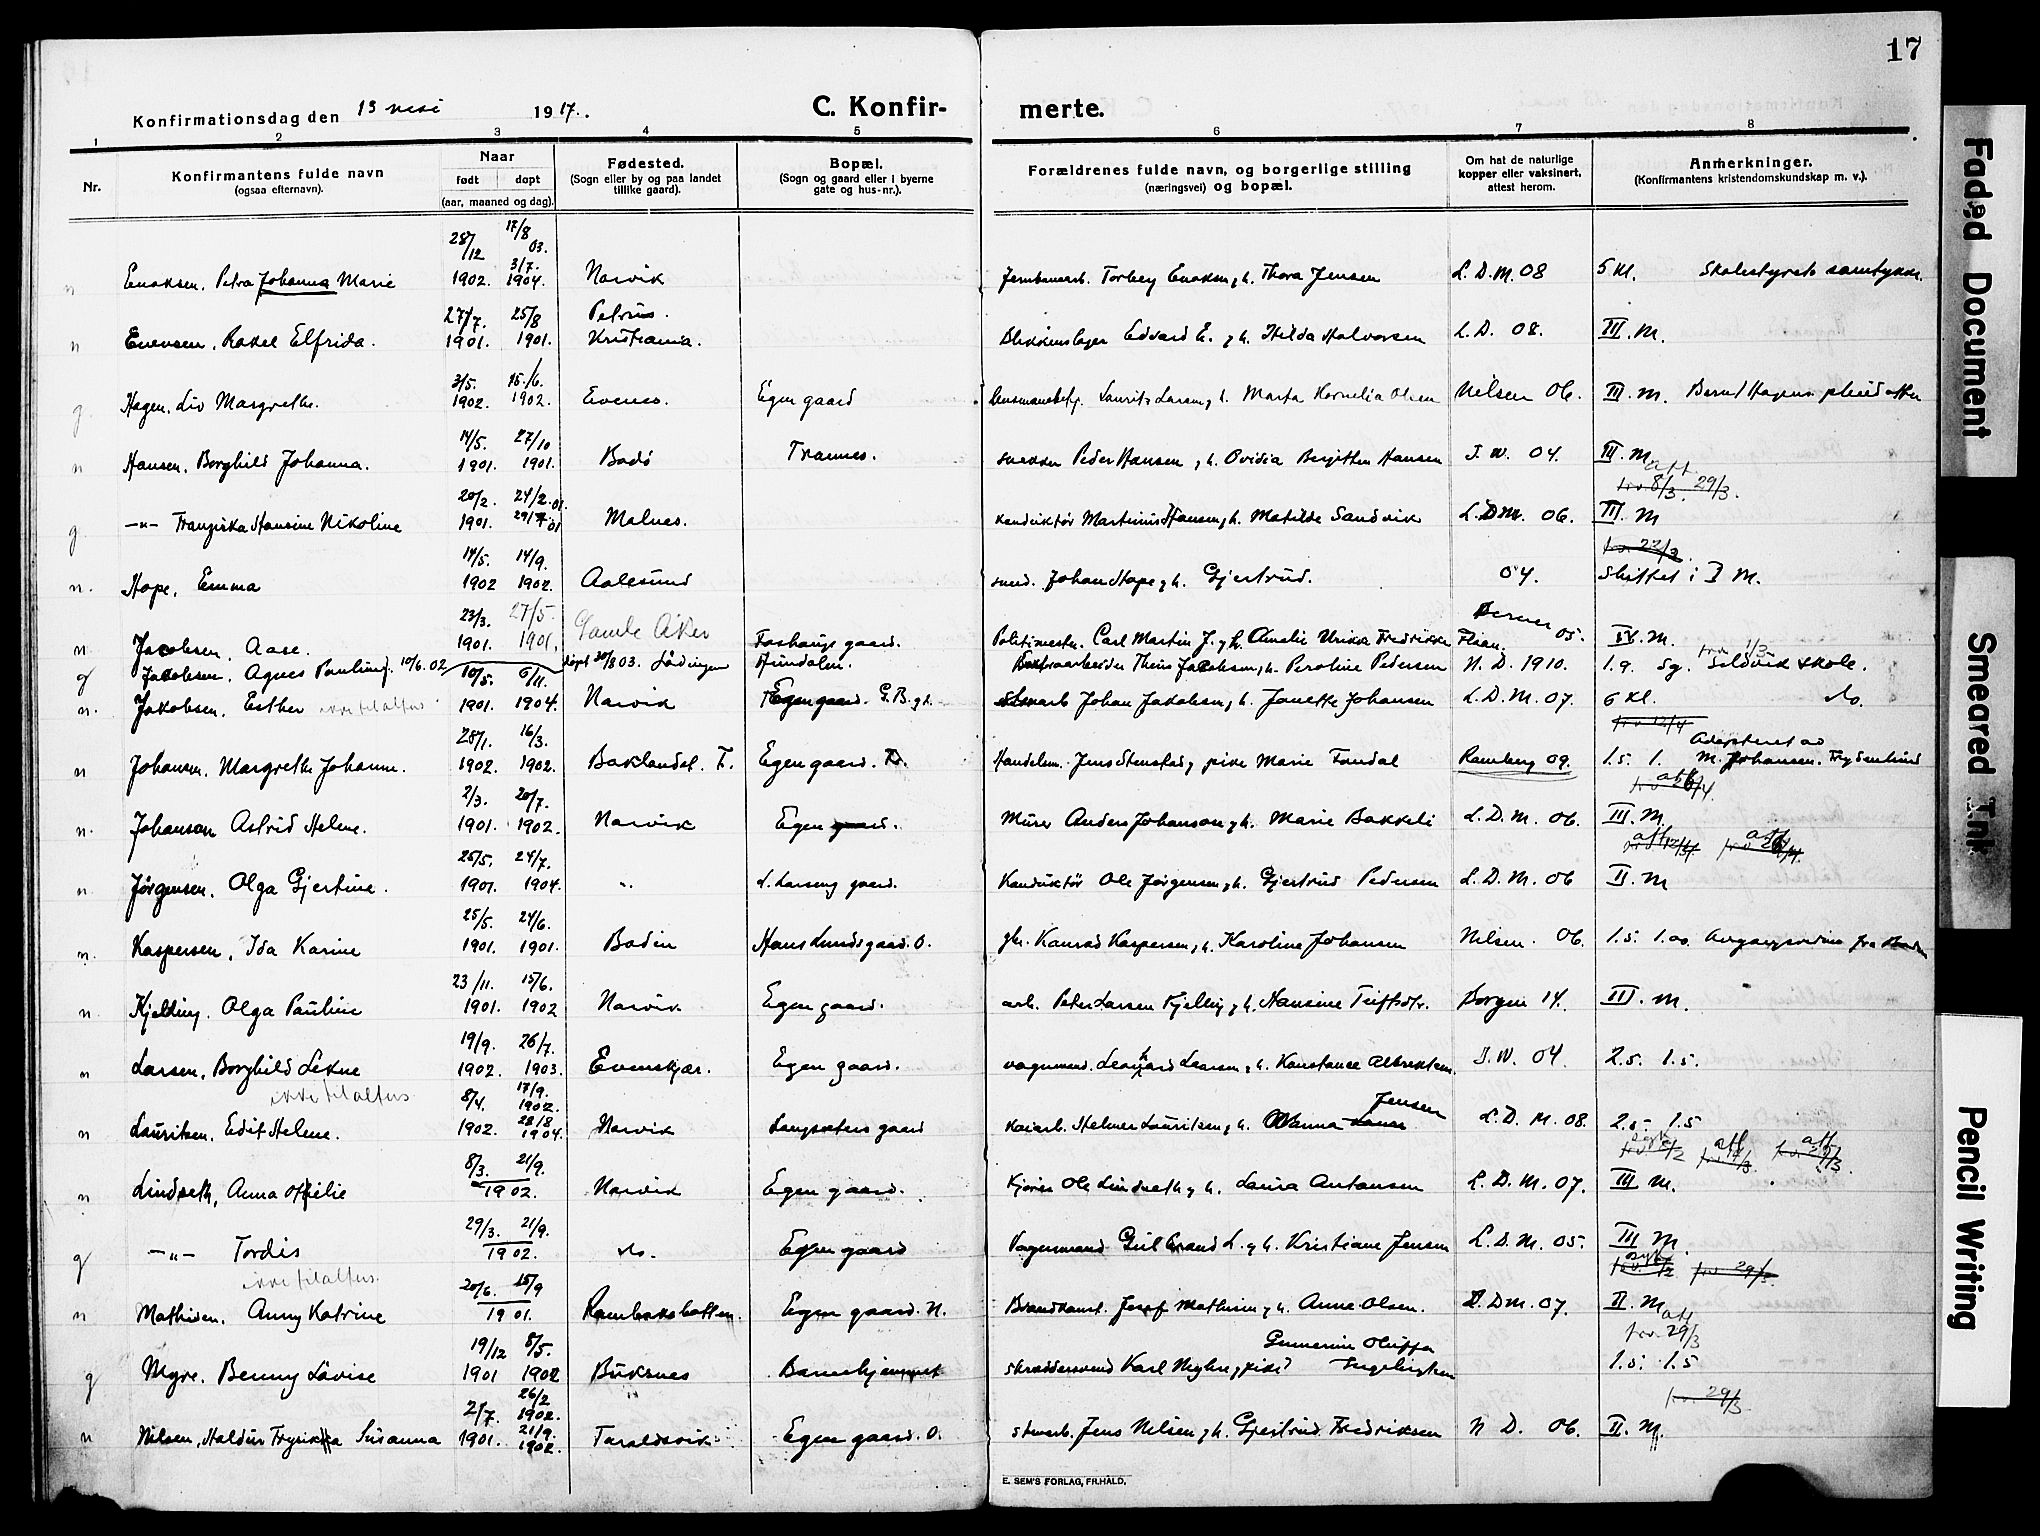 17
Konfirmationsdag den 13 mai 1917.
C. Konfirmerte.
1 2 3 4 5 6 7 8
Nr.
Konfirmantens fulde navn
(ogsaa efternavn).
Naar
født dopt
(aar, maaned og dag).
Fødested.
(Sogn eller by og paa landet
tillike gaard).
Bopæl.
(Sogn og gaard eller i byerne
gate og hus-nr.).
Forældrenes fulde navn, og borgerlige stilling
(næringsvei) og bopæl.
Om hat de naturlige
kopper eller vaksinert,
attest herom.
Anmerkninger.
(Konfirmantens kristendomskundskap m. v.).
28/12 17/8 03.
3/7.
n Enoksen, Petra Johanna Marie 1902. 1904. Narvik Torberg Enoksen, h. Thora Jensen L. D. M. 08 5 kl. Skolestyrets samtykke.
27/7. 25/8 Petrus.
n Evensen, Rakel Elfrida. 1901. 1901. Kristiania. Blikkenslager Edvard E. h. Hilda Halvorsen L. D. 08. III. M.
3/5. 15./6.
g. Hagen, Liv Margrethe. 1902. 1902. Evenes. Egen gaard Laurits Larsen, h. Marta Kornelia Olsen Nilsen 06. III. M. Bernt Hagens pleiedatter
14/5. 27/10
n Hansen, Borghild Johanna. 1901. 1901. Bodö Trannes. snekker Peder Hansen, h. Ovidia Bergitten Hansen J. W. 04. III. M
att.
8/3. 29/3.
20/2. 24/2.01.
g. —"— Franziska Hansine Nikoline 1901. Malnes. konduktør Martinius Hansen, h. Matilde Sandvik L. D. M. 06. III. M
22/3
14/5. 14/9.
n. Hope, Emma 1902 1902. Aalesund Johan Hope, h. Gjertrud. 04. Skiftet i I M.
23/3. 27/5.
Gamle Aker
n. Jacobsen, Aase. 1901. 1901. gaard. Politimestr. Carl Martin J. h. Amalie Ulrikke Fredrikke 05. IV. M.
g Jakobsen, Agnes Pauline. 10/6.02 10/5. 6/11. døpt 30/8 03. Lödingen Theis Jacobsen, h. Peroline Pedersen N. D. 1910. 1.g. Sg. Soldvik skole.
n. Jakobsen, Esther ikke til alters 1901. 1904. Narvik Egen gaard. Johan Jakobsen, h. Janette Johansen L. D. M. 07. 6 kl. do.
12/4
28/1. 16/3. Adopteret av
n Johansen, Margrethe Johanne. 1902. 1902. Baklandet. T. Egen gaard. Handelsm. Jens Stenstad, pike Marie Fondal Ramberg 09. 1.5 1. M. Johansen. Frydenlund
2/3. 20/7.
n. Johanson Astrid Helene. 1901. 1902. Narvik Egen gaard. Murer Anders Johanson, h. Marie Bakkeli L. D. M. 06. III. M.
25/5. 24/7.
n. Jörgensen, Olga Gjertine. 1901. 1904. ". L. Larsens gaard. Konduktör Ole Jörgensen, h. Gjertrud Pedersen L. D. M. 06 II. M
25/5. 24/6.
n. Kaspersen, Ida Karine 1901. 1901. Bodin Hans Lunds gaard. O. Konrad Kaspersen, h. Karoline Johansen Nilsen. 06. 1.5. 1.00.
23/11. 15/6.
n. Kjelding, Olga Pauline 1901. 1902 Narvik Egen gaard. arb. Peder Larsen Kjelling, h. Hansine Borgen 14. III. M.
19/9. 26/7.
n Larsen, Borghild Lekne 1902. 1903. Evenskjær. Egen gaard. vognmand. Leonhard Larsen, h. Konstanse Albrektsen. J. W. 04. 2.5. 1.5.
ikke til alters
8/4. 17/9. 1902. Jensen
n Lauritsen, Edit Helene. 1902. 28/8 1904. Narvik Langseters gaard kaiarb. Helmer Lauritsen, h. L. D. M. 08. 2.5- 1.5
8/3. 21/9.
n Lindseth, Anna Otilie 1902. Narvik Egen gaard. Ole Lindseth, h. Laura Antonsen L. D. M. 07. III M.
29/3. 21/9.
g —"— Tordis 1902. do. Egen gaard Vognmand Gulbrand L. h. Kristiane Jensen L. D. M. 05. III M.
ikke til alters.
20/6. 15/9
n Mathisen, Anny Katrine 1901. Rombaksbotten. Egen gaard. N. Brandkonst. Josef Mathisen, h. Anne Olsen. L. D. M. 07. II. M
att
29/3
19/12 8/5. Gunnerine Oluffa
g Myre, Benny Lovise 1901 1902 Buksnes Barnehjemmet skræddersvend Karl Myhre, pike Ingebrigtsen 1.5. 1.5
29/3
2/7. 26/2 1902.
n Nilsen, Haldur Frynikka Susanna 1901. 21/9. 1902. Taraldsvik Egen gaard. O. Jens Nilsen, h. Gjertrud Fredriksen N D. 06. II. M.
E. SEM'S FORLAG, FR.HALD.
Faded Document
Smeared Ink
Pencil Writing